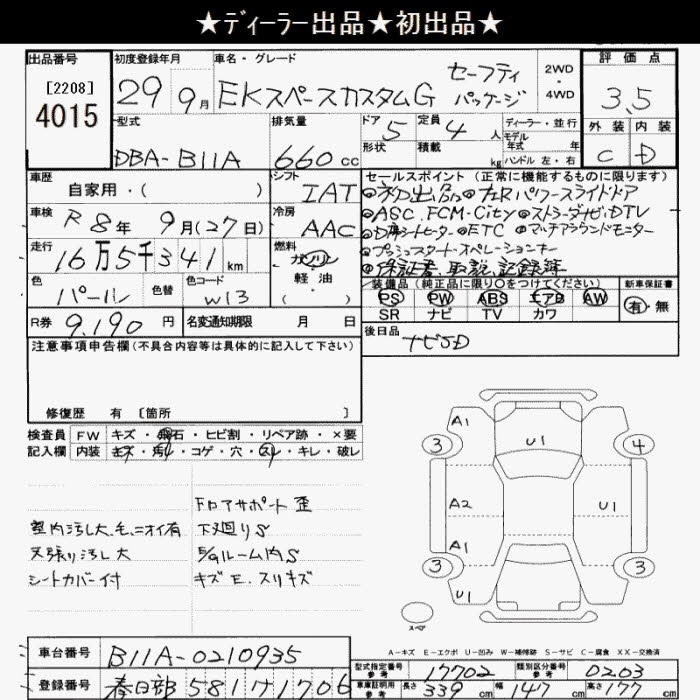 ★ディーラー出品★初出品★
出品番号
[2208]
4015
初度登録年月
29 9月
車名・グレード
EKスペースカスタムG セーフティパッケージ
2WD
4WD
評価点
3.5
外装 内装
C D
型式
DBA-B11A
排気量
660cc
ドア 5
形状
定員 4人
積載 kg
ディーラー・並行
モデル
年式 年
ハンドル 左・右
車歴
自家用・( )
シフト
IAT
セールスポイント(正常に機能するものに限ります)
◎初出品◎左Rパワースライドドア
◎ASC.FCM-City◎ストラーダナビ.DTV
◎D席シートヒーター◎ETC ◎マルチアラウンドモニター
◎プッシュスタート・オペレーションキー
◎保証書.取説.記録簿
車検
R8年 9月(27日)
冷房
AAC
走行
16万5千341km
燃料
ガソリン
軽油
( )
色
パール
色替
色コード
W13
装備品(純正品に限り○をつけてください)
PS PW ABS エアB AW
SR ナビ TV カワ
新車保証書
有・無
R券 9,190円
名変通知期限 月 日
後日品
ナビSD
注意事項申告欄(不具合内容等は具体的に記入して下さい)
修復歴 有 [箇所 ]
検査員 FW キズ・飛石・ヒビ割・リペア跡・×要
記入欄 内装 キズ・汚れ・コゲ・穴・スレ・キレ・破レ
室内汚し大.毛.ニオイ有
天張り汚し大
シートカバー付
Fロアサポート歪
下廻りS
E/Gルーム内S
キズE.スリキズ
A1
U1
3
4
A2
U1
A1
3
3
U1
スペア
A-キズ E-エクボ U-凹み W-補修跡 S-サビ C-腐食 XX-交換済
車台番号 B11A-0210935
登録番号 春日部581 1706
型式指定番号
参考
17702
類別区分番号
参考
0203
車車証明用
参考
長さ 339cm 幅 147cm 高さ 177cm